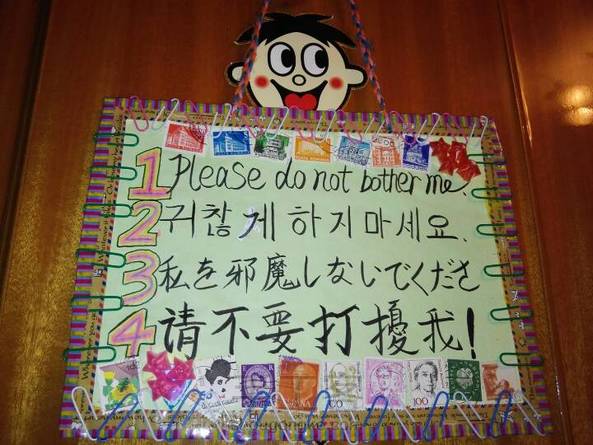 1 Please do not bother me.
2 귀찮게 하지마세요.
3 私を邪魔しないでくださ
4 请不要打擾我!